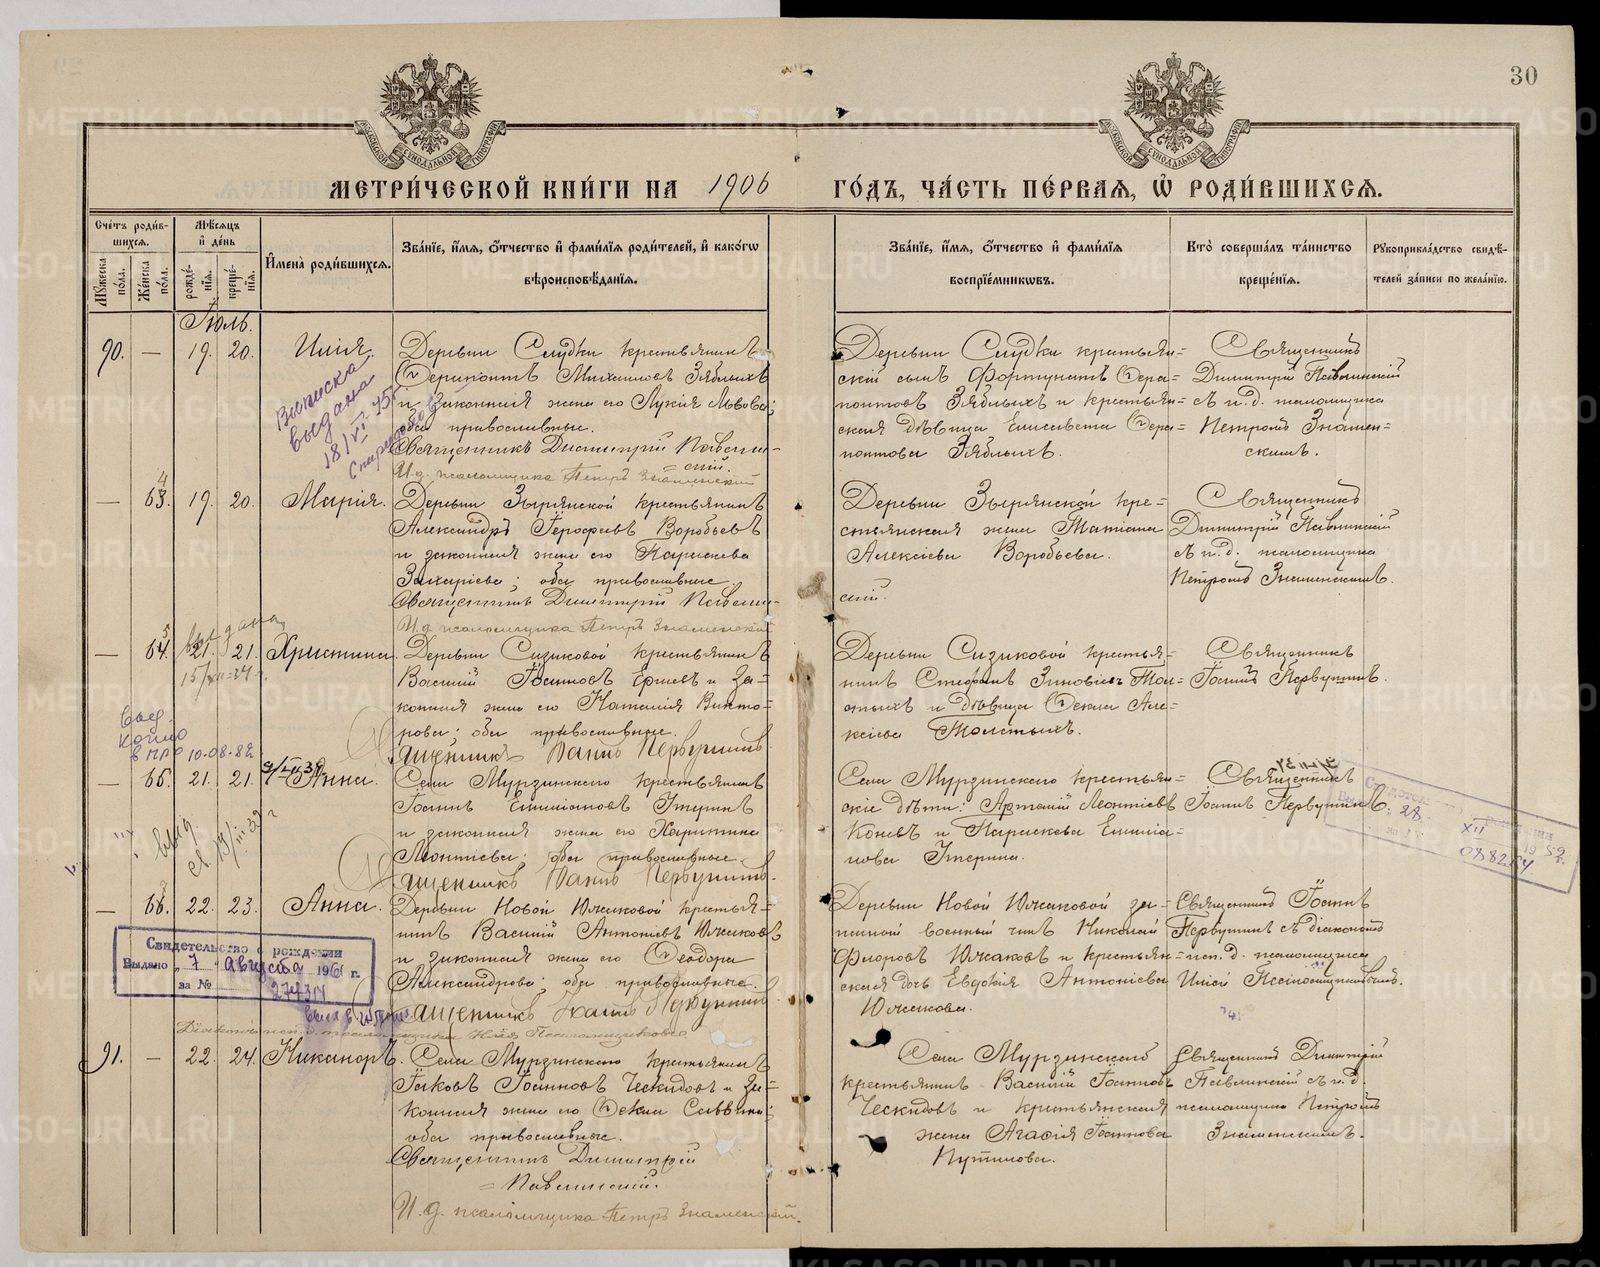 30
МОСКОВСКОЙ СѴНОДАЛЬНОЙ ТИПОГРАФІИ
МОСКОВСКОЙ СѴНОДАЛЬНОЙ ТИПОГРАФІИ
МЕТРИ́ЧЕСКОЙ КНИ́ГИ НА 1906 ГО́ДЪ, ЧА́СТЬ ПЕ́РВАЯ, Ѡ РОДИ́ВШИХСЯ.
Сче́тъ роди́вшихся.
Мѣ́сяцъ и де́нь
Му́жеска по́ла.
Же́нска по́ла.
рожде́нія.
креще́нія.
Имена̀ роди́вшихся.
Зва́ніе, и́мя, о́тчество и фами́лія роди́телей, и како́гѡ
вѣроисповѣ́данія.
Зва́ніе, и́мя, о́тчество и фами́лія
воспріе́мниковъ.
Кто̀ соверша́лъ та́инство
креще́нія.
Рукоприкла́дство свидѣ́-
телей за́писи по жела́нію.
Іюль.
90. — 19. 20. Илія.
Деревни Слудки крестьянинъ
Ѳерапонтъ Михаиловъ Зяблыхъ
и законная жена его Лукія Львова;
оба православные.
Священникъ Димитрій Павлин-
= скій.
И. д. псаломщика Петръ Знаменскій
Деревни Слудки крестьян=
скій сынъ Фортунатъ Ѳера=
понтовъ Зяблыхъ и крестьян=
ская дѣвица Елисавета Ѳера=
понтова Зяблыхъ.
Священникъ
Димитрій Павлинскій
съ и. д. псаломщика
Петромъ Знамен=
скимъ.
Выписка
выдана
18/VI-75г
— 64 19. 20. Марія.
Деревни Зырянской крестьянинъ
Александръ Іерофеевъ Воробьевъ
и законная жена его Параскева
Захаріева; оба православные.
Священникъ Димитрій Павлин-
И. д. псаломщика Петръ Знаменскій
Деревни Зырянской кре=
стьянская жена Татіана
Алексіева Воробьева.
скій.
Священникъ
Димитрій Павлинскій
съ и. д. псаломщика
Петромъ Знаменскимъ.
выдана
— 65 21. 21. Христина.
Деревни Сизиковой крестьянинъ
Василій Іоанновъ Ершевъ и за=
конная жена его Наталія Викто=
рова; оба православные.
Священникъ Іоаннъ Первушинъ.
Деревни Сизиковой крестья=
нинъ Стефанъ Зиновіевъ Тол=
стыхъ и дѣвица Ѳекла Але=
ксіева Толстыхъ.
Священникъ
Іоаннъ Первушинъ.
10-08-82
— 21. 21. Анна.
Села Мурзинскаго крестьянинъ
Іоаннъ Емиліановъ Итеринъ
и законная жена его Харитина
Леонтіева; оба православные.
Священникъ Іоаннъ Первушинъ.
Села Мурзинскаго крестьян=
скіе дѣти: Артемій Леонтіевъ
Коневъ и Параскева Емилia=
нова Итерина.
Священникъ
Іоаннъ Первушинъ.
28 XII 1959 г.
088254
— 22. 23. Анна.
Деревни Новой Южаковой крестья=
нинъ Василій Антоніевъ Южаковъ
и законная жена его Ѳеодора
Александрова; оба православные.
Священникъ Іоаннъ Первушинъ
Діаконъ исп. д. псаломщика Илія Псаломщиковъ
Деревни Новой Южаковой за=
пасной военный чинъ Николай
Флоровъ Южаковъ и крестьян=
ская дочь Евдокія Антоніева
Южакова.
Священникъ Іоаннъ
Первушинъ съ діакономъ
исп. д. псаломщика
Иліей Псаломщиковымъ.
Свидетельство о рождении
Выдано „ 7 " Августа 1961 г.
за №
91. — 22. 24. Никаноръ.
Села Мурзинскаго крестьянинъ
Іаковъ Іоанновъ Ческидовъ и за=
конная жена его Ѳекла Саввина;
оба православные.
Священникъ Димитрій
= Павлинскій.
И. д. псаломщика Петръ Знаменскій.
Села Мурзинскаго
крестьянинъ Василій Іоанновъ
Ческидовъ и крестьянская
жена Агафія Іоаннова
Путилова.
Священникъ Димитрій
Павлинскій съ и. д.
псаломщика Петромъ
Знаменскимъ.
METRIKI.GASO-URAL.RU